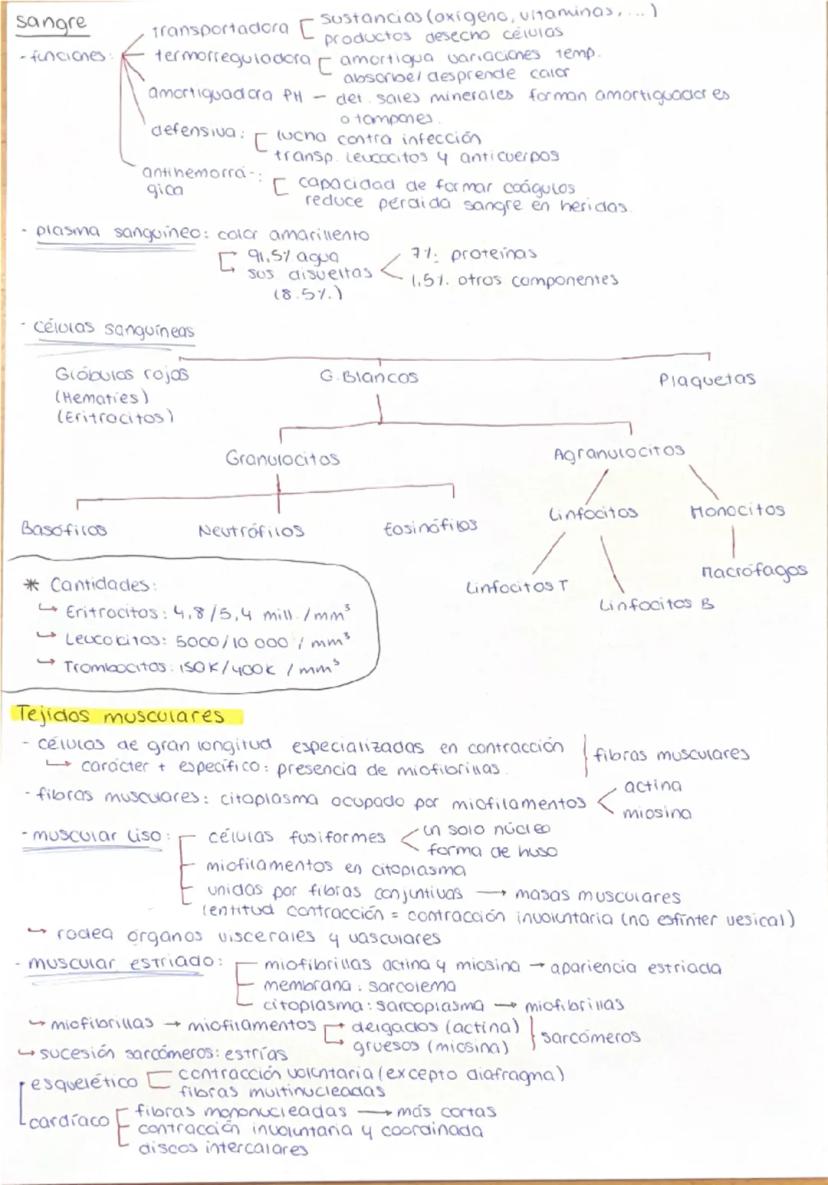 sangre
- funciones:
transportadora
sustancias (oxígeno, vitaminas, ...)
productos desecho células
termorreguladora
amortigua variaciones temp.
absorbe/desprende calor
amortiguadora PH — det. sales minerales forman amortiguadores
o tampones.
defensiva:
lucha contra infección
transp. leucocitos y anticuerpos
antihemorrá-:
gica
capacidad de formar coágulos
reduce pérdida sangre en heridas.
- plasma sanguíneo: color amarillento
91,5% agua
sus disueltas
(8.5%)
7% proteínas
1,5% otros componentes
- células sanguíneas
Glóbulos rojos
(Hematíes)
(Eritrocitos)
G. Blancos
Plaquetas
Granulocitos
Agranulocitos
Basófilos
Neutrófilos
Eosinófilos
Linfocitos
Monocitos
Linfocitos T
Linfocitos B
Macrófagos
* Cantidades:
↳ Eritrocitos: 4,8/5,4 mill./mm³
↳ Leucocitos: 5000/10 000 / mm³
↳ Trombocitos: 150K/400K / mm³
Tejidos musculares
- células de gran longitud especializadas en contracción
↳ carácter + específico: presencia de miofibrillas.
fibras musculares
- fibras musculares: citoplasma ocupado por miofilamentos
actina
miosina
- muscular liso:
células fusiformes
un solo núcleo
forma de huso
miofilamentos en citoplasma
unidas por fibras conjuntivas → masas musculares
lentitud contracción = contracción involuntaria (no esfínter vesical)
↳ rodea órganos viscerales y vasculares
- muscular estriado:
miofibrillas actina y miosina → apariencia estriada
membrana: sarcolema
citoplasma: sarcoplasma → miofibrillas
↳ miofibrillas → miofilamentos
delgados (actina)
gruesos (miosina)
sarcómeros
↳ sucesión sarcómeros: estrías
esquelético
contracción voluntaria (excepto diafragma)
fibras multinucleadas
cardíaco
fibras mononucleadas → más cortas
contracción involuntaria y coordinada
discos intercalares